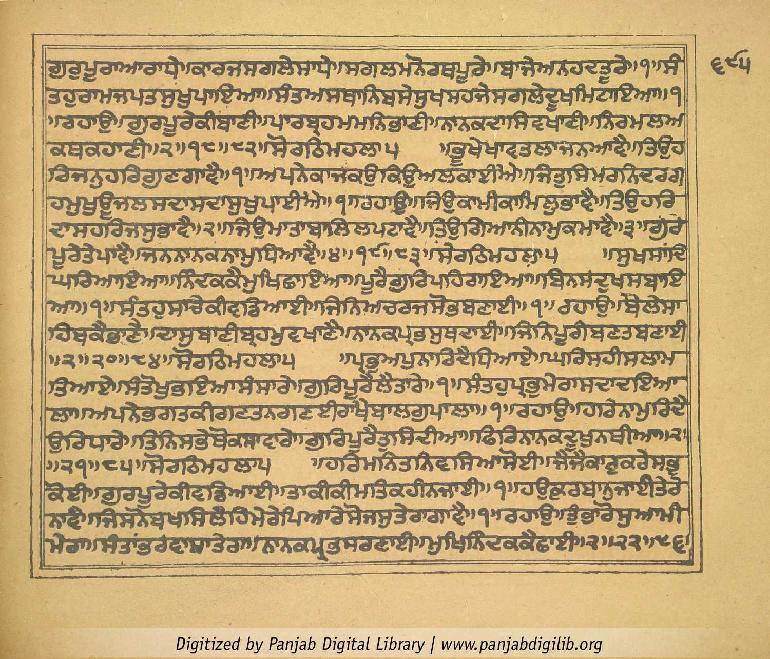 ਗੁਰੁਪੂਰਾਆਰਾਧੇ॥ਕਾਰਜਸਗਲੇਸਾਧੇ॥ਸਗਲਮਨੋਰਥਪੂਰੇ॥ਬਾਜੇਅਨਹਦਤੂਰੇ॥੧॥ਸੰ
ਤਹੁਰਾਮਜਪਤਸੁਖੁਪਾਇਆ॥ਸੰਤਅਸਥਾਨਿਬਸੇਸੁਖਸਹਜੇਸਗਲੇਦੂਖਮਿਟਾਇਆ॥੧
॥ਰਹਾਉ॥ਗੁਰਪੂਰੇਕੀਬਾਣੀ॥ਪਾਰਬ੍ਰਹਮਮਨਿਭਾਣੀ॥ਨਾਨਕਦਾਸਿਵਖਾਣੀ॥ਨਿਰਮਲਅ
ਕਥਕਹਾਣੀ॥੨॥੧੮॥੮੨॥ਸੋਰਠਿਮਹਲਾ੫ ॥ਭੂਖੇਖਾਵਤਲਾਜਨਆਵੈ॥ਤਿਉਹ
ਰਿਜਨੁਹਰਿਗੁਣਗਾਵੈ॥੧॥ਅਪਨੇਕਾਜਕਉਕਿਉਅਲਕਾਈਐ॥ਜਿਤੁਸਿਮਰਨਿਦਰਗ
ਹਮੁਖੁਊਜਲਸਦਾਸਦਾਸੁਖੁਪਾਈਐ॥੧॥ਰਹਾਉ॥ਜਿਉਕਾਮੀਕਾਮਿਲੁਭਾਵੈ॥ਤਿਉਹਰਿ
ਦਾਸਹਰਿਜਸੁਭਾਵੈ॥੨॥ਜਿਉਮਾਤਾਬਾਲਿਲਪਟਾਵੈ॥ਤਿਉਗਿਆਨੀਨਾਮੁਕਮਾਵੈ॥੩॥ਗੁਰ
ਪੂਰੇਤੇਪਾਵੈ॥ਜਨਨਾਨਕਨਾਮੁਧਿਆਵੈ॥੪॥੧੯॥੮੩॥ਸੋਰਠਿਮਹਲਾ੫ ॥ਸੁਖਸਾਂਦਿ
ਘਰਿਆਇਆ॥ਨਿੰਦਕਕੈਮੁਖਿਛਾਇਆ॥ਪੂਰੈਗੁਰਿਪਹਿਰਾਇਆ॥ਬਿਨਸੇਦੁਖਸਬਾਇ
ਆ॥੧॥ਸੰਤਹੁਸਾਚੇਕੀਵਡਿਆਈ॥ਜਿਨਿਅਚਰਜਸੋਭਬਣਾਈ॥੧॥ਰਹਾਉ॥ਬੋਲੇਸਾ
ਹਿਬਕੈਭਾਣੈ॥ਦਾਸੁਬਾਣੀਬ੍ਰਹਮੁਵਖਾਣੈ॥ਨਾਨਕਪ੍ਰਭਸੁਖਦਾਈ॥ਜਿਨਿਪੂਰੀਬਣਤਬਣਾਈ
॥੨॥੨੦॥੮੪॥ਸੋਰਠਿਮਹਲਾ੫ ॥ਪ੍ਰਭੁਅਪੁਨਾਰਿਦੈਧਿਆਏ॥ਘਰਿਸਹੀਸਲਾਮ
ਤਿਆਏ॥ਸੰਤੋਖੁਭਇਆਸੰਸਾਰੇ॥ਗੁਰਿਪੂਰੈਲੈਤਾਰੇ॥੧॥ਸੰਤਹੁਪ੍ਰਭੁਮੇਰਾਸਦਾਦਇਆ
ਲਾ॥ਅਪਨੇਭਗਤਕੀਗਣਤਨਗਣਈਰਾਖੈਬਾਲਗੁਪਾਲਾ॥੧॥ਰਹਾਉ॥ਹਰਿਨਾਮੁਰਿਦੈ
ਉਰਿਧਾਰੇ॥ਤਿਨਿਸਭੇਥੋਕਸਵਾਰੇ॥ਗੁਰਿਪੂਰੈਤੁਸਿਦੀਆ॥ਫਿਰਿਨਾਨਕਦੂਖੁਨਥੀਆ॥੨
॥੨੧॥੮੫॥ਸੋਰਠਿਮਹਲਾ੫ ॥ਹਰਿਮਨਿਤਨਿਵਸਿਆਸੋਈ॥ਜੈਜੈਕਾਰੁਕਰੇਸਭੁ
ਕੋਈ॥ਗੁਰਪੂਰੇਕੀਵਡਿਆਈ॥ਤਾਕੀਕੀਮਤਿਕਹੀਨਜਾਈ॥੧॥ਹਉਕੁਰਬਾਨੁਜਾਈਤੇਰੇ
ਨਾਵੈ॥ਜਿਸਨੋਬਖਸਿਲੈਹਿਮੇਰੇਪਿਆਰੇਸੋਜਸੁਤੇਰਾਗਾਵੈ॥੧॥ਰਹਾਉ॥ਤੂੰਭਾਰੋਸੁਆਮੀ
ਮੇਰਾ॥ਸੰਤਾਂਭਰਵਾਸਾਤੇਰਾ॥ਨਾਨਕਪ੍ਰਭਸਰਣਾਈ॥ਮੁਖਿਨਿੰਦਕਕੈਛਾਈ॥੨॥੨੨॥੮੬॥
੬੯੫
Digitized by Panjab Digital Library | www.panjabdigilib.org